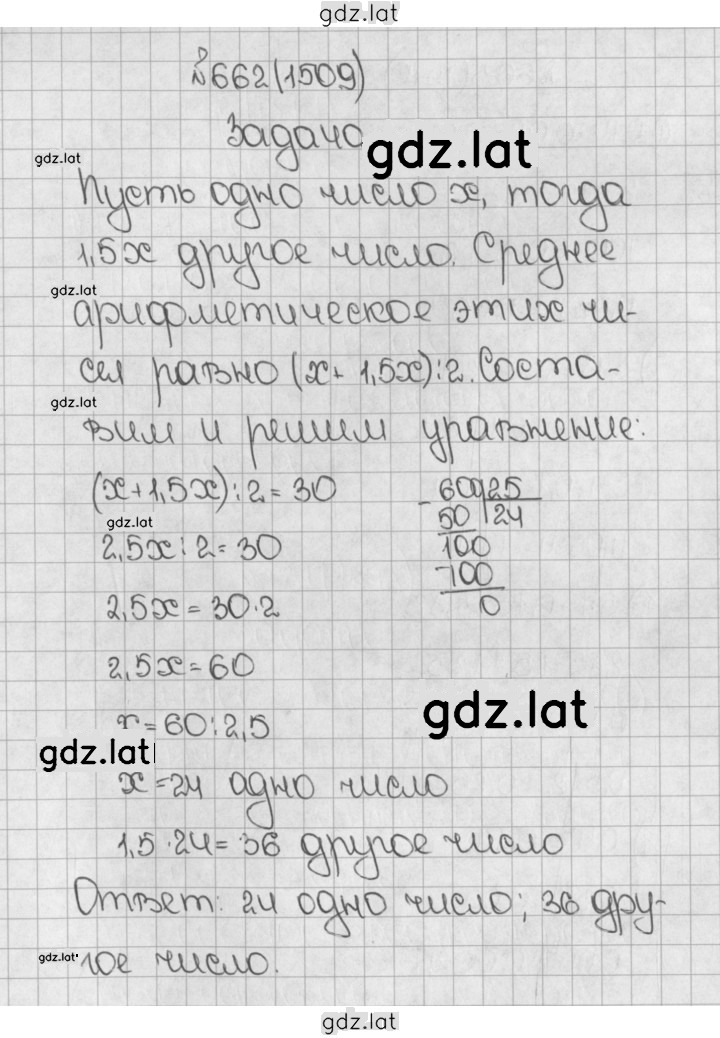 gdz.lat
№662(1509)
Задача
gdz.lat
gdz.lat
Пусть одно число x, тогда
1,5x другое число. Среднее
gdz.lat
арифметическое этих чи-
сел равно (x+1,5x):2. Соста-
gdz.lat
вим и решим уравнение:
(x+1,5x):2=30
gdz.lat
2,5x:2=30
2,5x=30·2
2,5x=60
x=60:2,5
gdz.lat
x=24 одно число
1,5·24=36 другое число
600|25
-50 |24
100
-100
0
gdz.lat
Ответ: 24 одно число; 36 дру-
gdz.lat
гое число.
gdz.lat